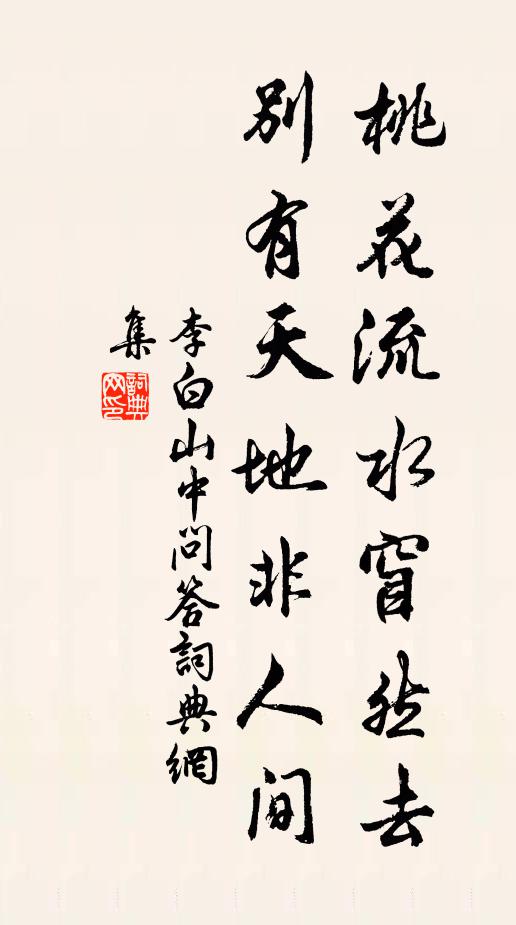 桃花流水窅然去
别有天地非人间
李白山中問答詞典網
集
詞典
网印